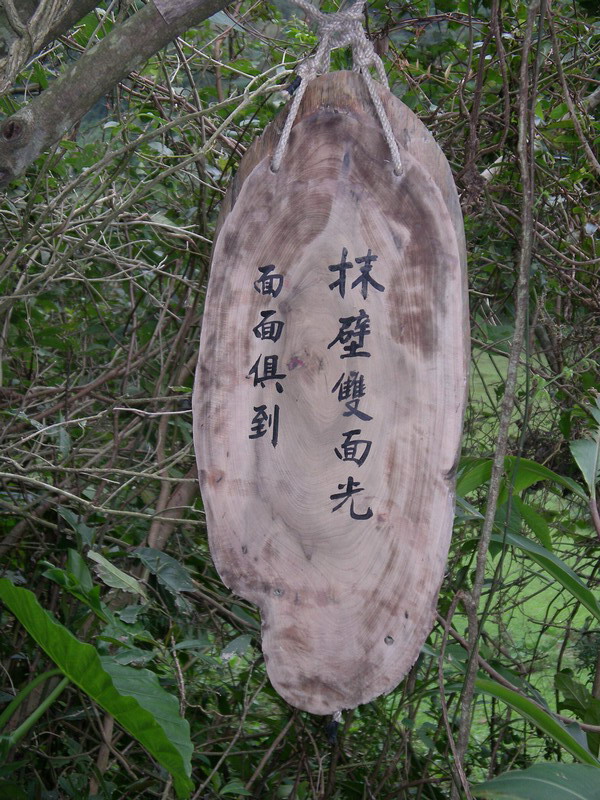 抹壁雙面光
面面俱到